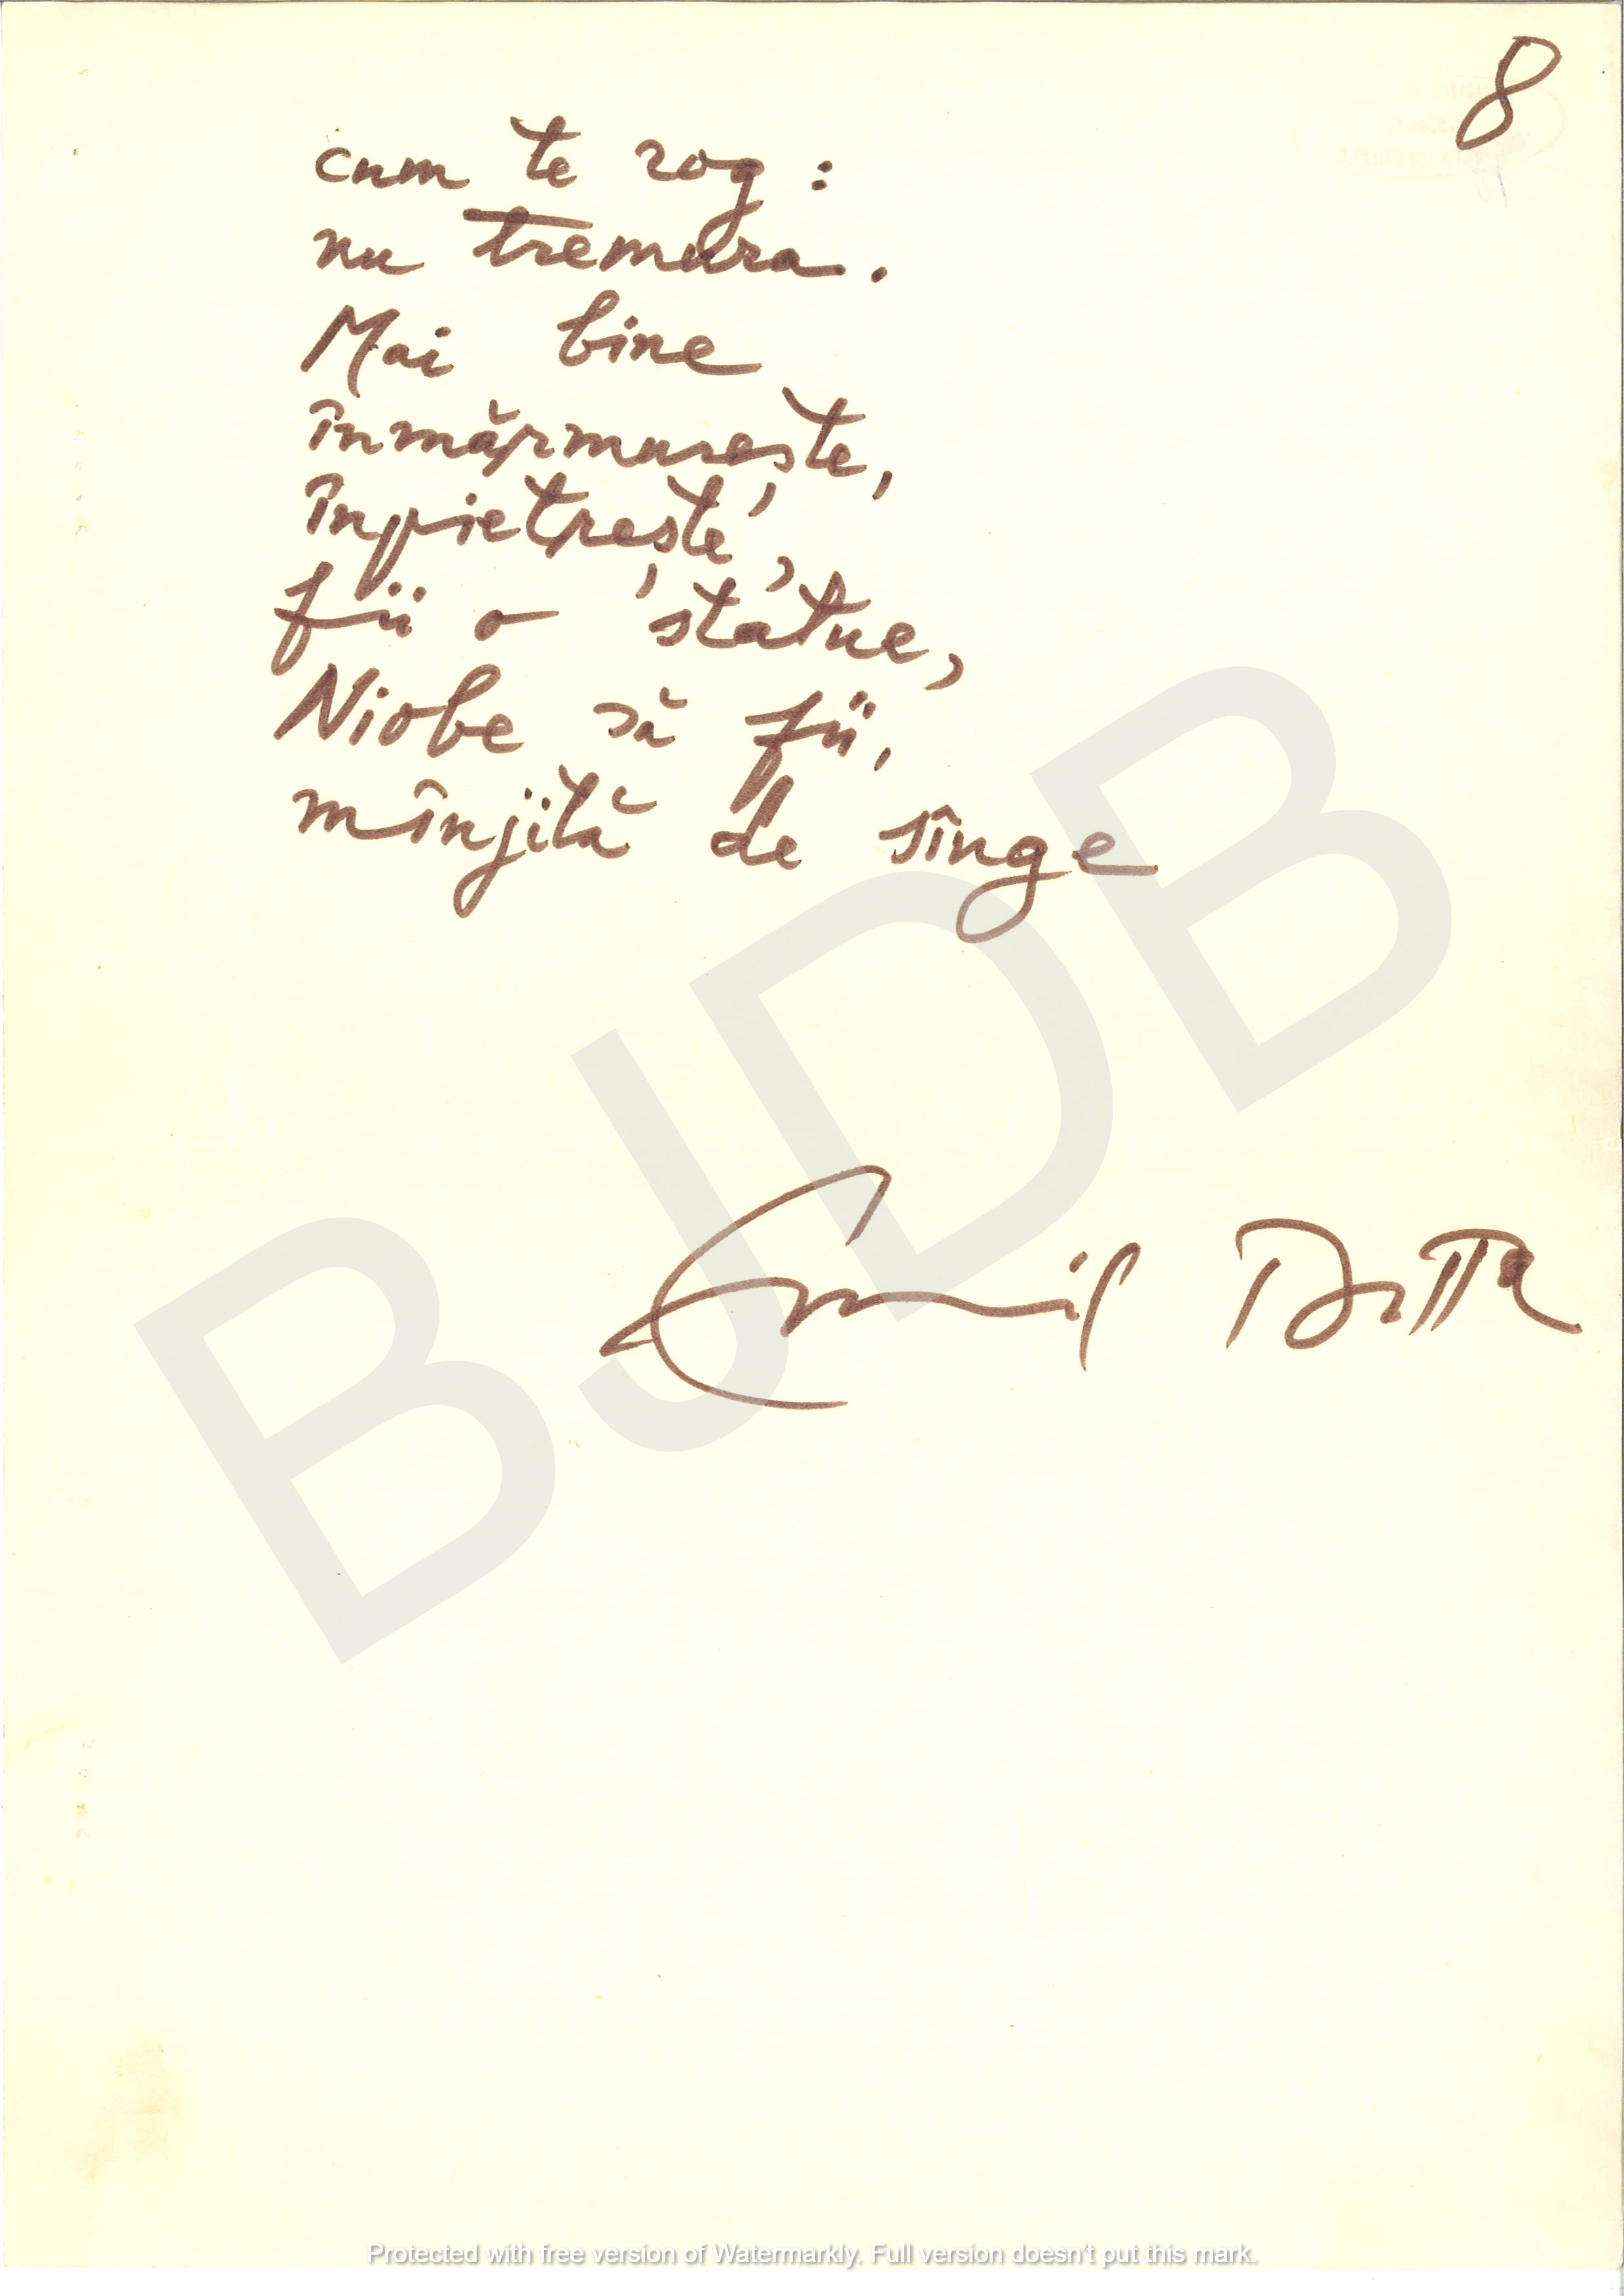 8
cum te rog :
nu tremura.
Mai bine
înmărmurește,
înpietrește,
fii o statue,
Niobe să fii,
mînjită de sînge
Emil Botta
BJDB
Protected with free version of Watermarkly. Full version doesn't put this mark.